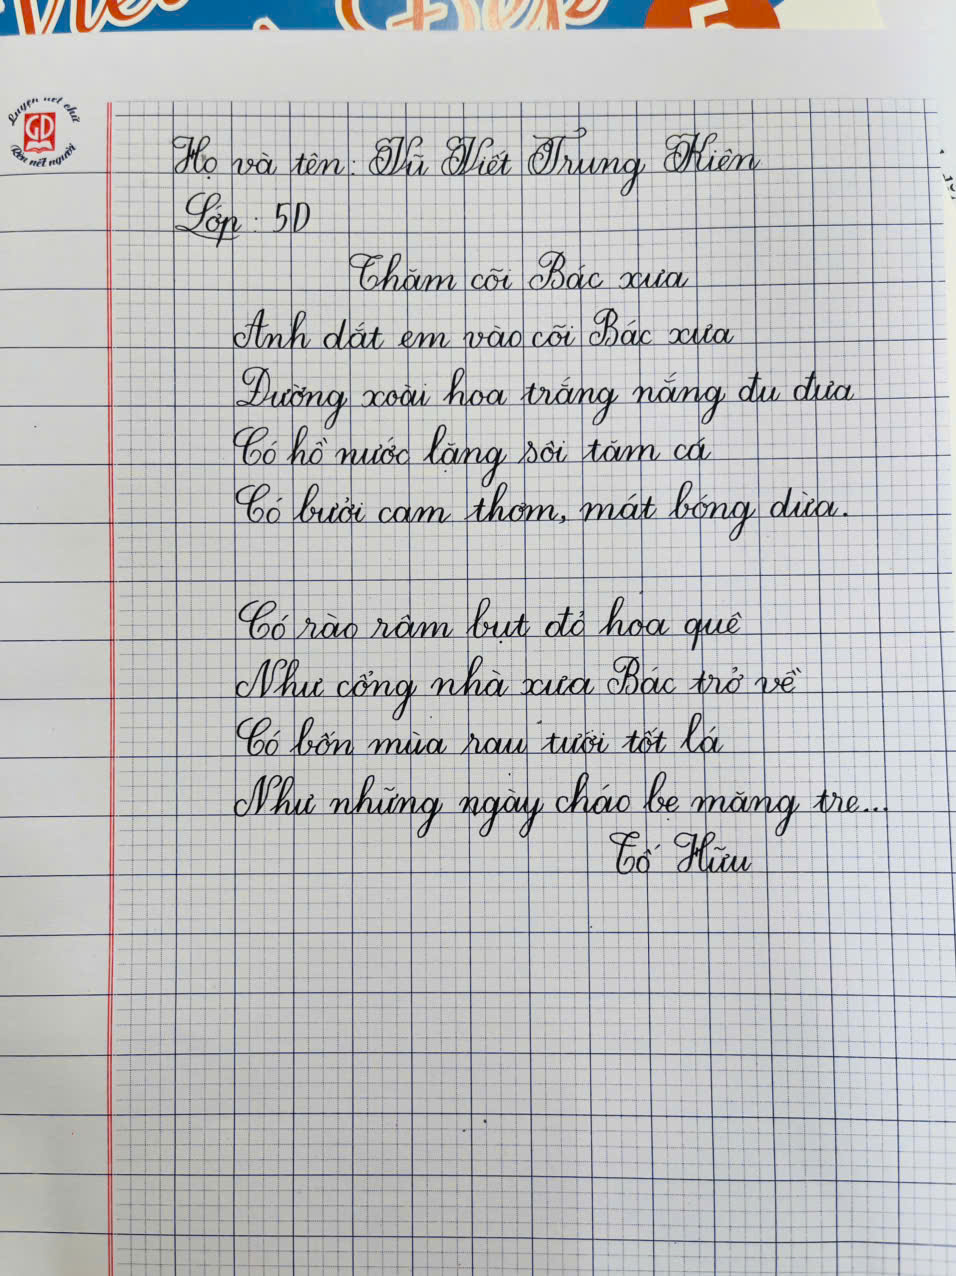 Viết Đẹp 5
Luyện nét chữ
GD
Rèn nết người
Họ và tên: Vũ Viết Trung Kiên
Lớp: 5D
Thăm cõi Bác xưa
Anh dắt em vào cõi Bác xưa
Đường xoài hoa trắng nắng đu đưa
Có hồ nước lặng sôi tăm cá
Có bưởi cam thơm, mát bóng dừa.
Có rào râm bụt đỏ hoa quê
Như cổng nhà xưa Bác trở về
Có bốn mùa rau tươi tốt lá
Như những ngày cháo bẹ măng tre...
Tố Hữu